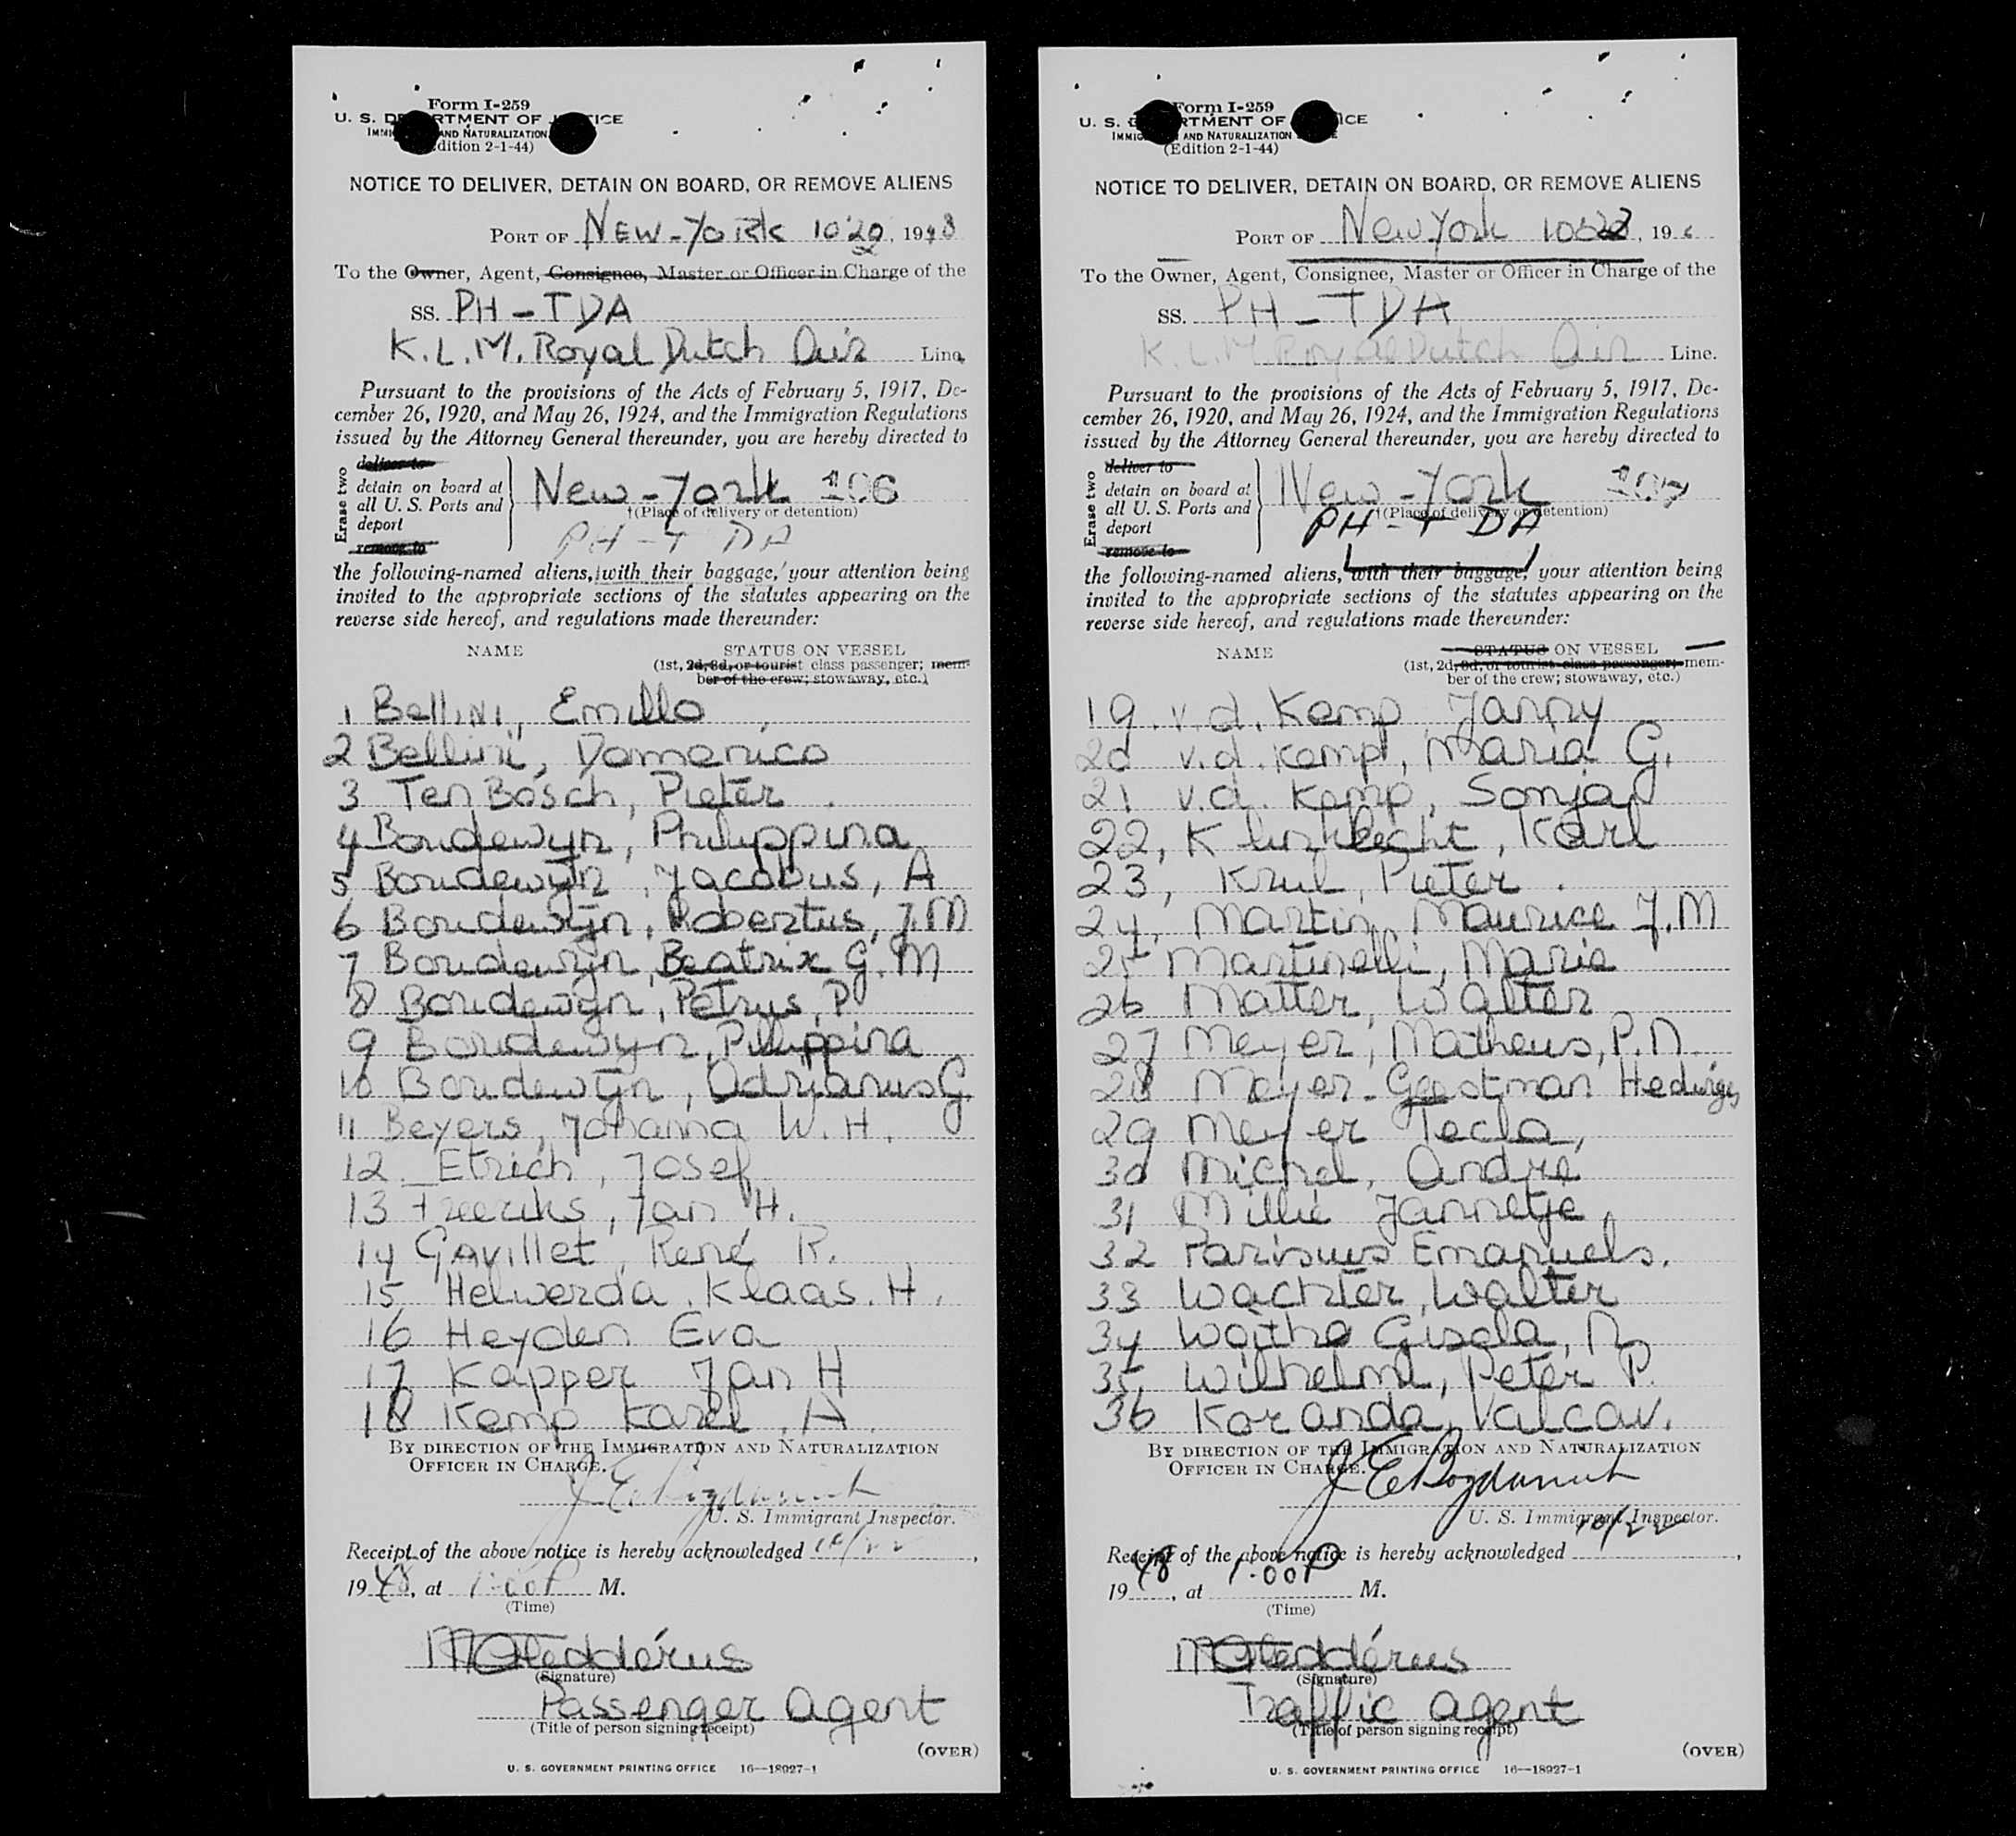 Form I-259
U. S. DEPARTMENT OF JUSTICE
IMMIGRATION AND NATURALIZATION
(Edition 2-1-44)
NOTICE TO DELIVER, DETAIN ON BOARD, OR REMOVE ALIENS
PORT OF NEW-YORK 10 , 1948
To the Owner, Agent, Consignee, Master or Officer in Charge of the
SS. PH-TDA
K.L.M. Royal Dutch Air Line,
Pursuant to the provisions of the Acts of February 5, 1917, De-
cember 26, 1920, and May 26, 1924, and the Immigration Regulations
issued by the Attorney General thereunder, you are hereby directed to
Erase two
deliver to
detain on board at
all U. S. Ports and
deport
remove to
New-York
†(Place of delivery or detention)
PH-TDA
the following-named aliens, with their baggage, your attention being
invited to the appropriate sections of the statutes appearing on the
reverse side hereof, and regulations made thereunder:
NAME STATUS ON VESSEL
(1st, 2d, 3d, or tourist class passenger; mem-
ber of the crew; stowaway, etc.)
1 Bellini, Emillo
2 Bellini, Domenico
3 Ten Bosch, Pieter
4 Boudewyn, Philippina
5 Boudewyn, Jacobus, A
6 Boudewyn, Robertus, J.M
7 Boudewyn, Beatrix G.M
8 Boudewyn, Petrus, P
9 Boudewyn, Pilippina
10 Boudewyn, Adrianus G.
11 Beyers, Johanna W.H.
12. Etrich, Josef
13 Freeriks, Jan H.
14 Gavillet, René R.
15, Helwerda, Klaas. H.
16 Heyden Eva
17 Kapper Jan H
18 Kemp Karel, A.
BY DIRECTION OF THE IMMIGRATION AND NATURALIZATION
OFFICER IN CHARGE.
U. S. Immigrant Inspector.
Receipt of the above notice is hereby acknowledged 10/22,
1948, at 1:00 P M.
(Time)
(Signature)
Passenger Agent
(Title of person signing receipt)
(OVER)
U. S. GOVERNMENT PRINTING OFFICE 16—18927-1
Form I-259
U. S. DEPARTMENT OF JUSTICE
IMMIGRATION AND NATURALIZATION
(Edition 2-1-44)
NOTICE TO DELIVER, DETAIN ON BOARD, OR REMOVE ALIENS
PORT OF New York 10 , 19
To the Owner, Agent, Consignee, Master or Officer in Charge of the
SS. PH-TDA
K.L.M Royal Dutch Air Line.
Pursuant to the provisions of the Acts of February 5, 1917, De-
cember 26, 1920, and May 26, 1924, and the Immigration Regulations
issued by the Attorney General thereunder, you are hereby directed to
Erase two
deliver to
detain on board at
all U. S. Ports and
deport
remove to
New-York
†(Place of delivery or detention)
PH-TDA
the following-named aliens, with their baggage, your attention being
invited to the appropriate sections of the statutes appearing on the
reverse side hereof, and regulations made thereunder:
NAME STATUS ON VESSEL
(1st, 2d, 3d, or tourist class passenger; mem-
ber of the crew; stowaway, etc.)
19. v.d. Kemp Janny
20 v.d. Kemp, Maria G.
21 v.d. Kemp, Sonja
22, Karl
23, Krul, Pieter.
24, Martin, Maurice J.M
25 Martinelli, Marie
26 Matter, Walter
27 Meyer, Matheus, P.N.
28 Meyer- Hedwige,
29 Meyer Tecla,
30 Michel, André
31 Millie Jannetje
32 Parisius Emanuels.
33 Wachter, Walter
34 Gisela, M
35, Wilhelmi, Peter P.
36 Koranda, Valcav.
BY DIRECTION OF THE IMMIGRATION AND NATURALIZATION
OFFICER IN CHARGE.
U. S. Immigrant Inspector.
Receipt of the above notice is hereby acknowledged 10/22,
1948, at 1:00 P M.
(Time)
(Signature)
Traffic Agent
(Title of person signing receipt)
(OVER)
U. S. GOVERNMENT PRINTING OFFICE 16—18927-1